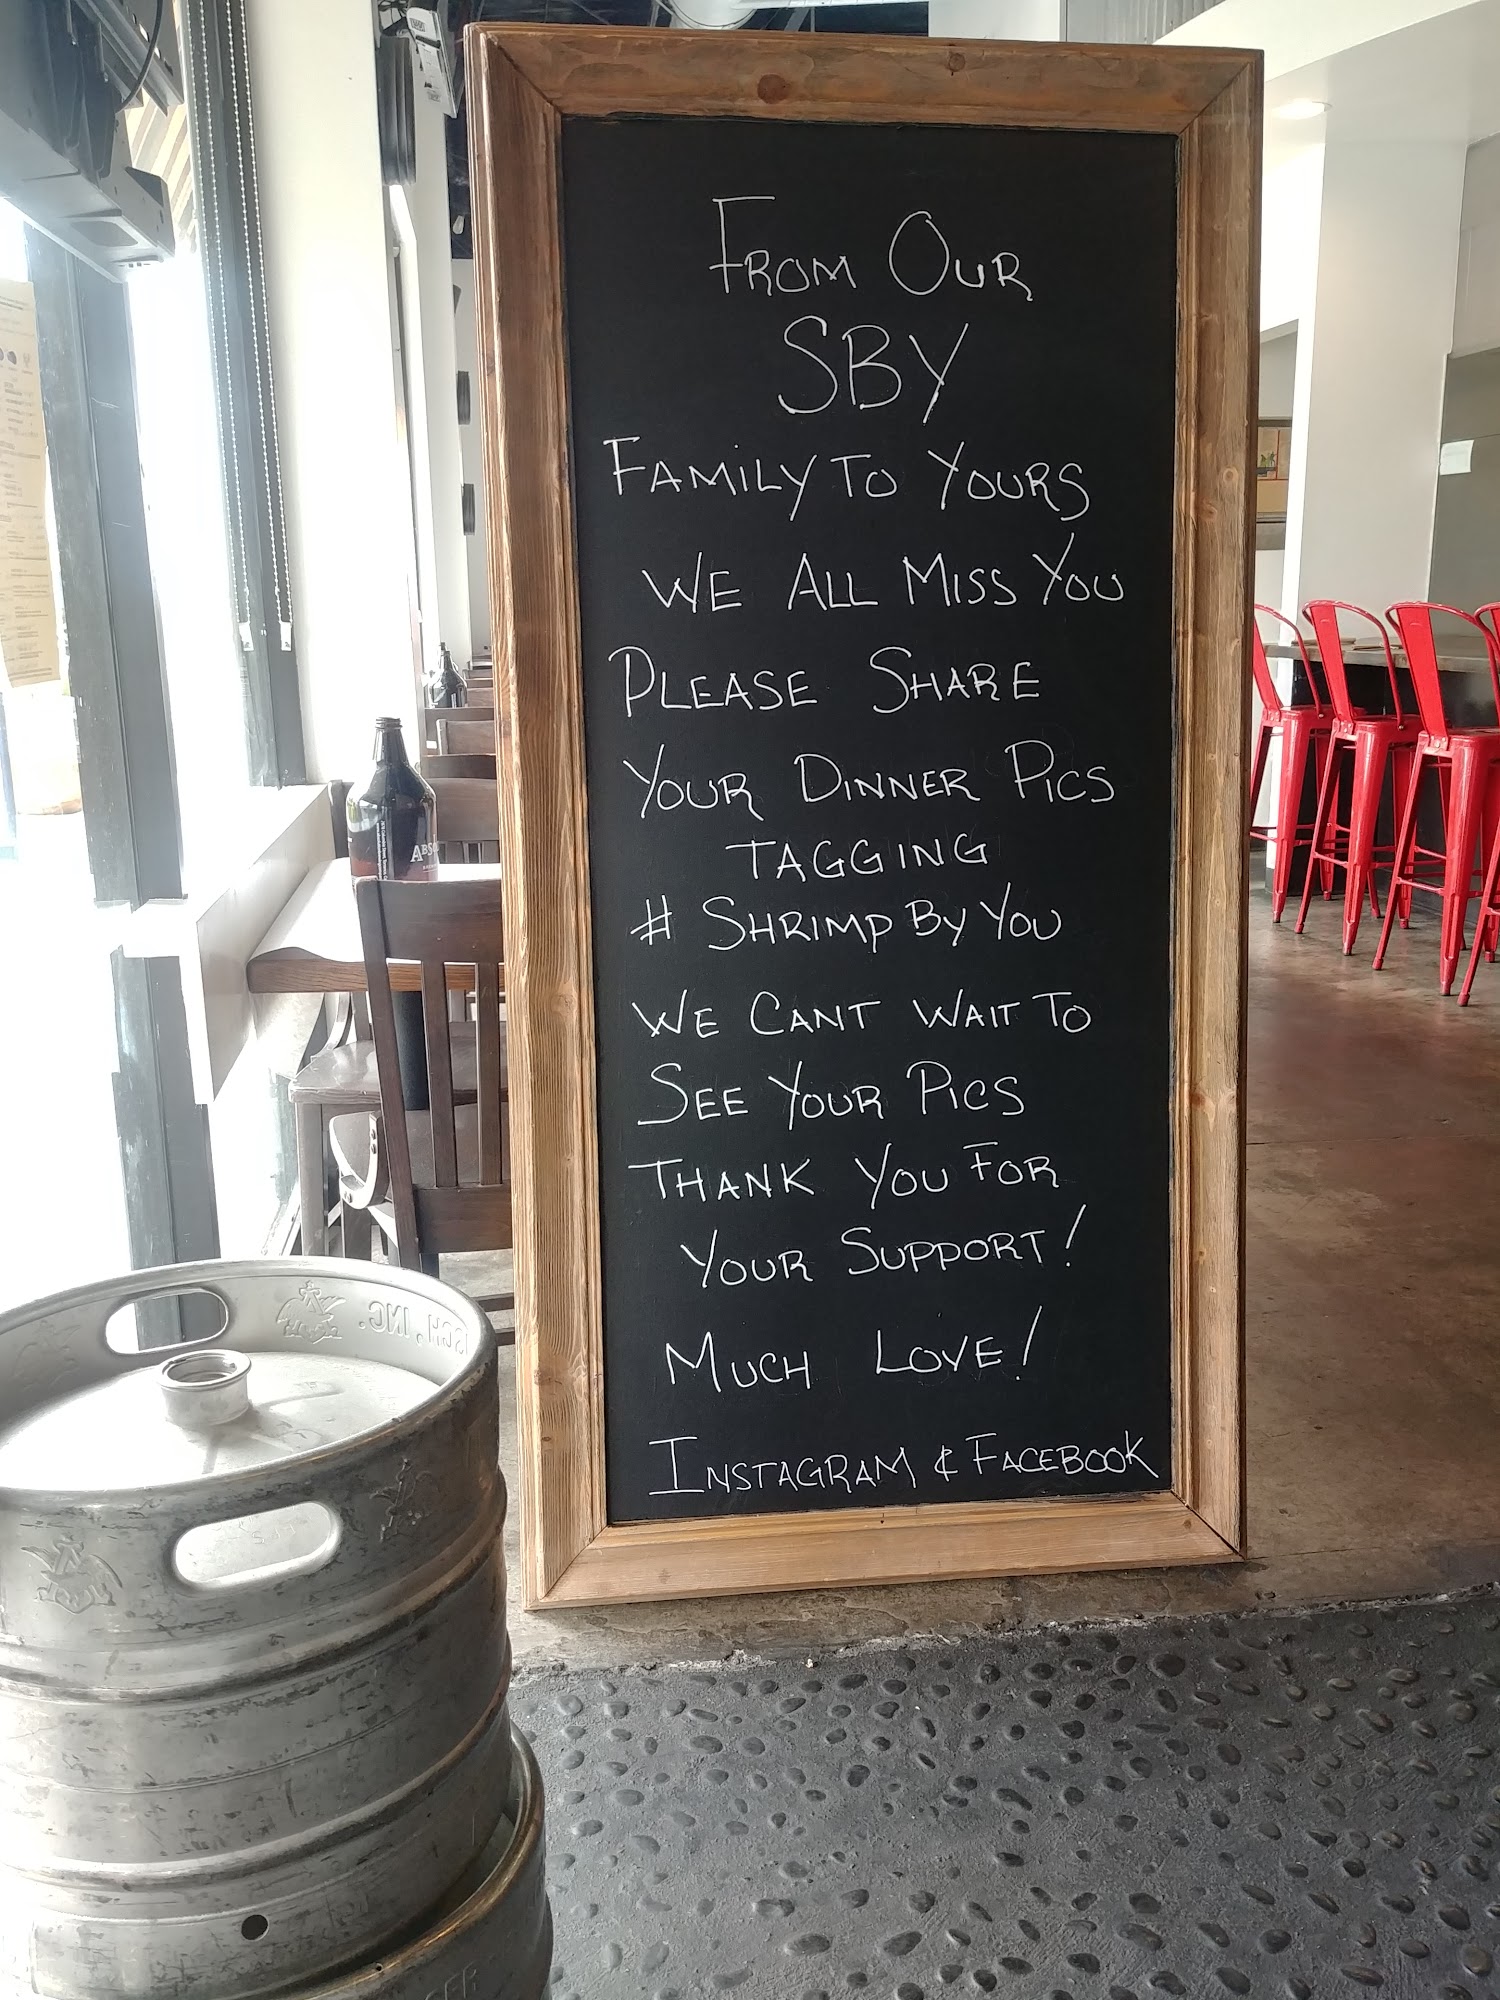 From Our
SBY
Family To Yours
We All Miss You
Please Share
Your Dinner Pics
Tagging
# Shrimp By You
We Cant Wait To
See Your Pics
Thank You For
Your Support!
Much Love!
Instagram & Facebook